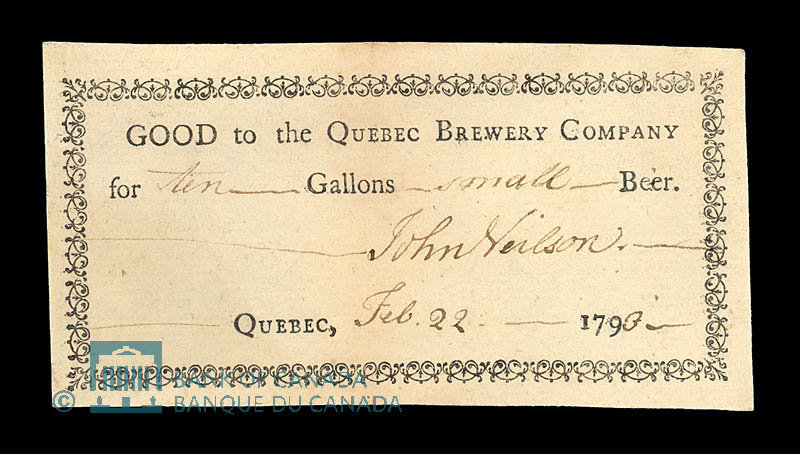 GOOD to the QUEBEC BREWERY COMPANY
for ten Gallons small Beer.
John Neilson.
QUEBEC, Feb. 22 1793
© BANK OF CANADA
BANQUE DU CANADA